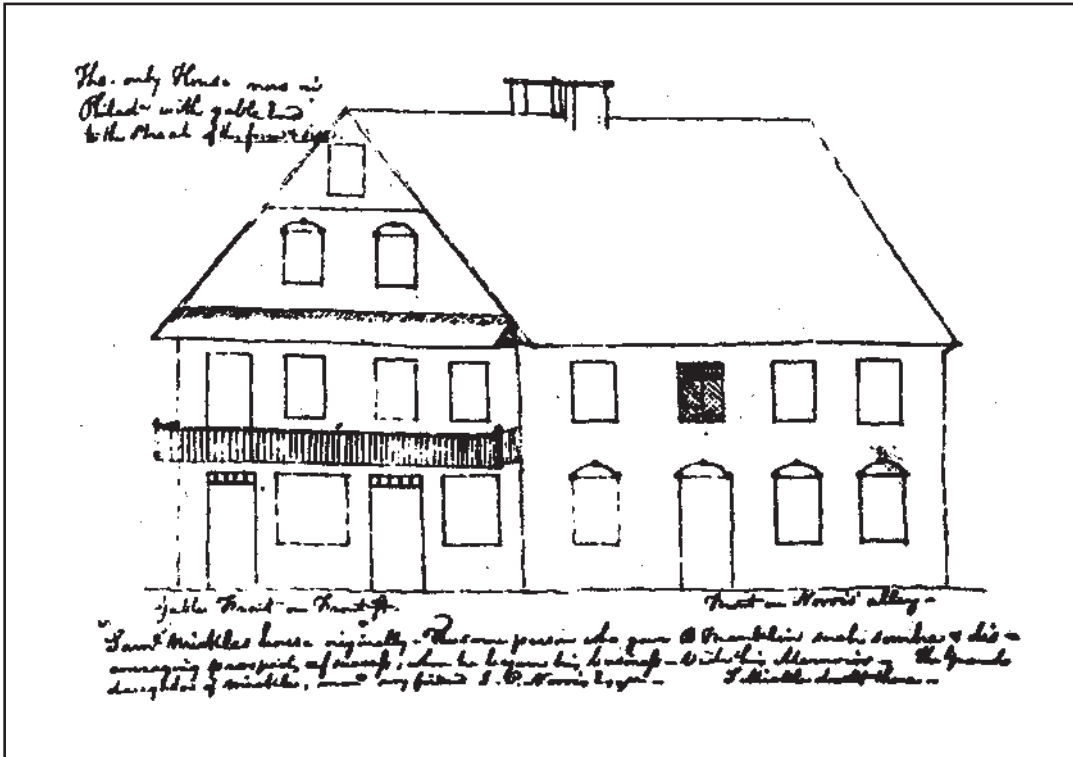 The only House now in
Philada with gable End
to the Street of the front
gable Front on Front St.
Front on Norris' alley -
"Saml Mickles house originally - The same person who gave B Franklin such sombre & dis =
couraging prospects of success, when he began his business - Vide his Memoirs - The Grand
daughter of Mickles, my friend J. P. Norris Esqr - S Mickle dwelt there -